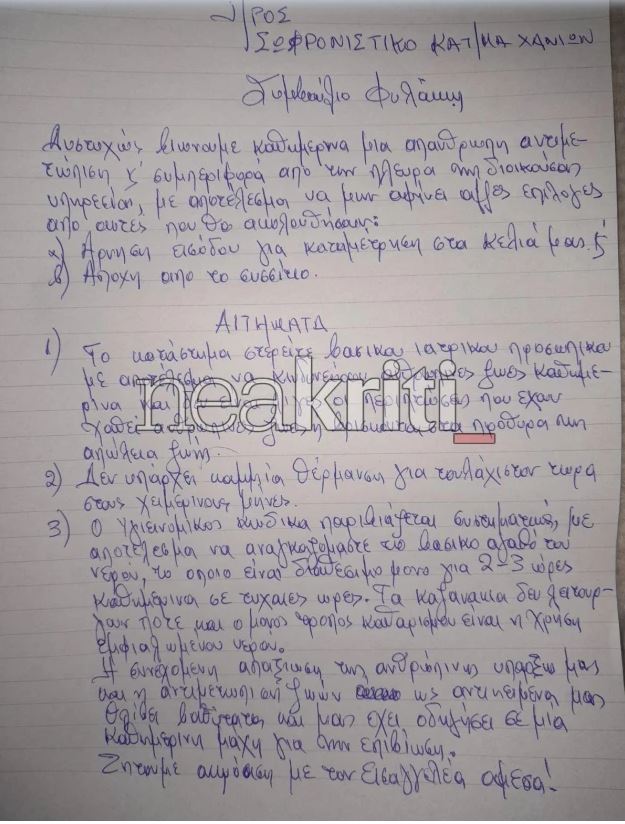 Προς
ΣΩΦΡΟΝΙΣΤΙΚΟ ΚΑΤ/ΜΑ ΧΑΝΙΩΝ
Συμβούλιο Φυλακης
Δυστυχώς βιωνουμε καθημερινα μια απανθρωπη αντιμε-
τώπιση κ' συμπεριφορά απο την πλευρα της διοικουσας
υπηρεσίας, με αποτέλεσμα να μην αφήνει αλλες επιλογες
απο αυτες που θα ακολουθήσουν:
α) Αρνηση εισόδου για καταμετρηση στα κελιά μας κ'
β) Αποχη απο το συσσίτιο.
ΑΙΤΗΜΑΤΑ
1) Το κατάστημα στερείτε βασικου ιατρικου προσωπικου
με αποτέλεσμα να κινδυνεύουν ανθρωπινες ζωες καθημε-
ρινα και οι περιπτωσεις που εχουν
χαθεί στα πρόθυρα της
απώλεια ζωής.
2) Δεν υπάρχει καμμία θέρμανση για τουλάχιστον τωρα
στους χειμερινους μηνες.
3) Ο Υγειονομικος κωδικα παραβιάζεται συστηματικώς, με
αποτελεσμα να αναγκαζομαστε το βασικο αγαθο του
νερου, το οποιο είναι διαθεσιμο μονο για 2-3 ώρες
καθημερινα σε τυχαιες ωρες. Τα καζανακια δεν λειτουρ-
γουν ποτε και ο μονος τροπος καθαρισμου είναι η χρηση
εμφιαλωμενου νερου.
Η συνεχομενη απαξιωση της ανθρώπινης υπαρξης μας
και η αντιμετωπιση ζωων ως αντικειμενα μας
θλιβει βαθύτατα και μας εχει οδηγήσει σε μια
καθημερινη μαχη για την επιβίωση.
Ζητουμε ακρόαση με τον Εισαγγελέα αμεσα!
neakriti_